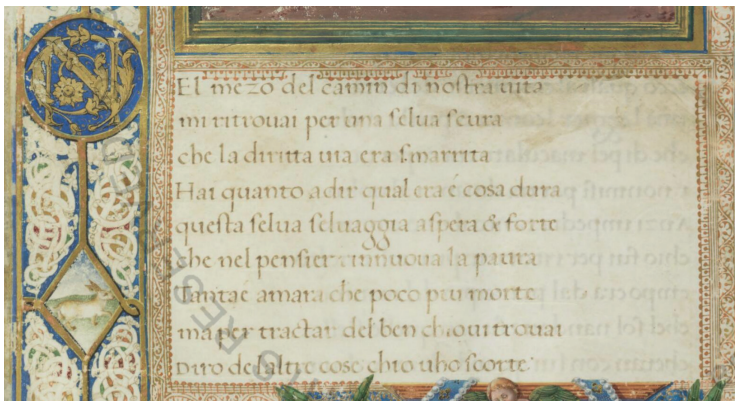 N
El mezo del camin di nostra uita
mi ritrouai per una selua scura
che la diritta uia era smarrita
Hai quanto adir qual era é cosa dura
questa selua seluaggia aspera & forte
che nel pensier rinnuoua la paura
Tantae amara che poco piu morte
ma per tractar del ben chioui trouai
Diro delaltre cose chio uho scorte